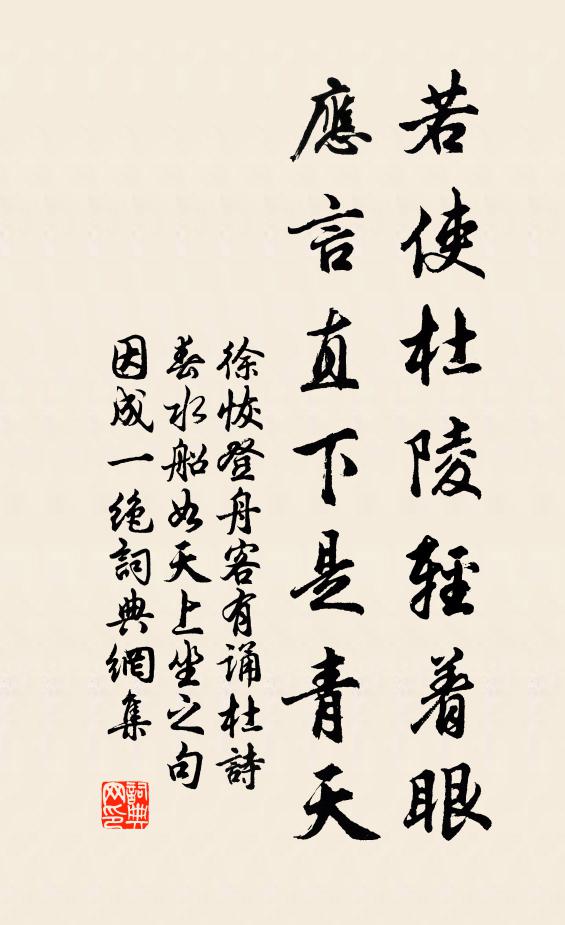 若使杜陵輕着眼
應言直下是青天
徐恢登舟客有誦杜詩
春水船如天上坐之句
因成一絕詞典網集
詞典
网印